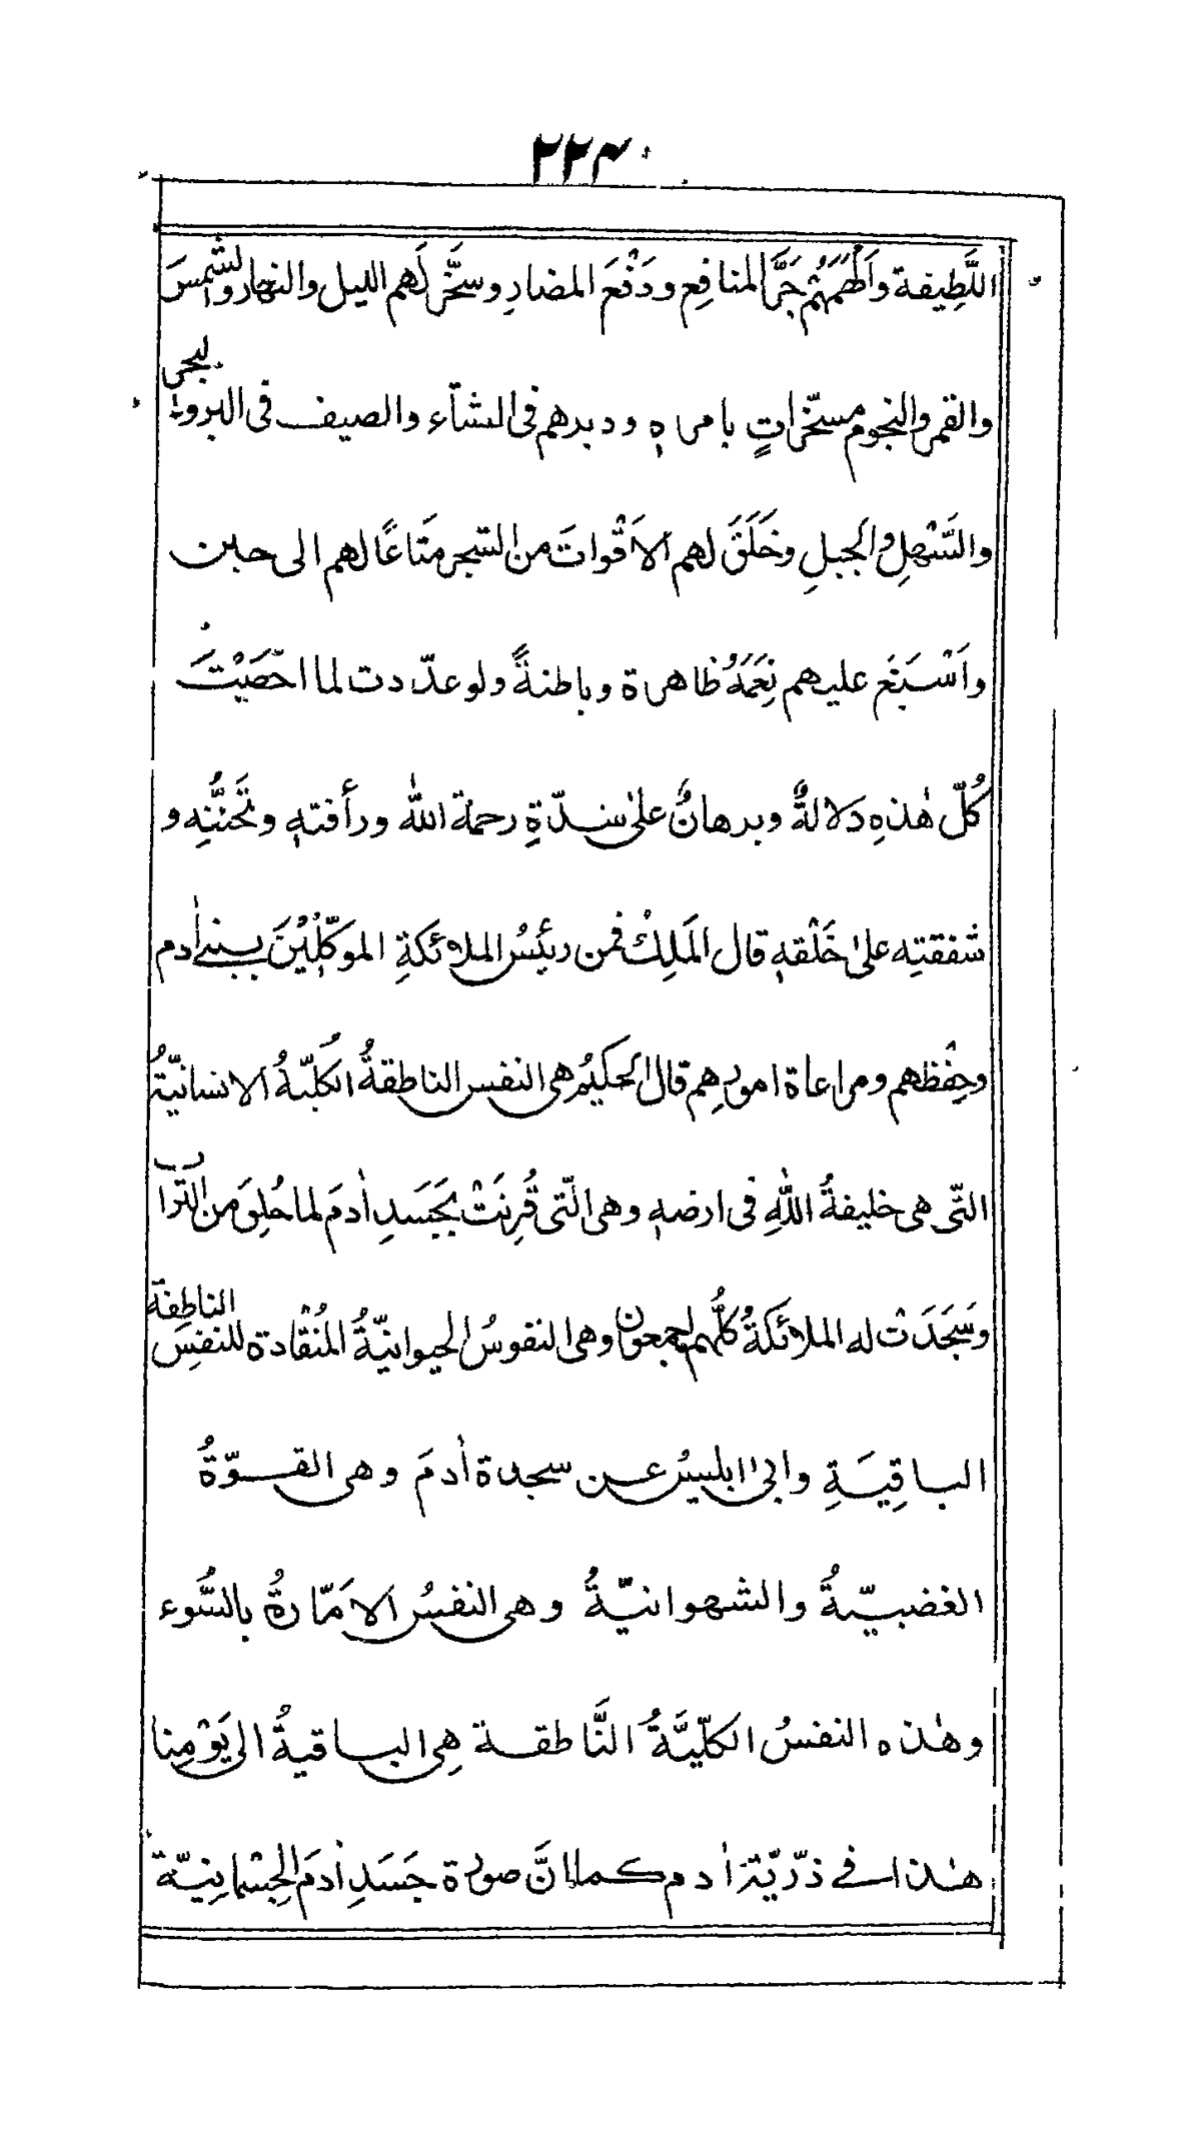 ۲۲۴
اللَّطِيفة وأَلْهَمَهُم جَرَّ المنافِع ودَفْعَ المضارِ وسخَّر لَهم الليل والنهار والشمسَ
والقمر والنجوم مسخّراتٍ بامره ودبرهم فى الشتآء والصيف فى البر والبحر
والسَّهْلِ والجبلِ وخَلَقَ لهم الاَقْواتَ من الشجر مَتَاعًا لهم الى حين
واَسْبَغَ عليهم نِعَمَهُ ظاهرة وباطنةً ولو عدّدت لما احْصَيْتَ
كُلّ هٰذهِ دَلالةٌ وبرهانٌ علىٰ شدّةِ رحمة اللّٰه ورأفتهٖ وتحنُّنِهٖ و
شفقتِه علىٰ خَلْقهٖ قال المَلِكْ فمن رئيسُ الملائكةِ الموكّلِيْنَ ببنى اٰدم
وحِفْظهم ومراعاة امورِهم قال الحكيمُ هى النفس الناطقةُ الكُلّيّةُ الانسانيّةُ
التّى هى خليفةُ اللّٰهِ فى ارضهٖ وهى الّتى قُرِنَتْ بجَسَدِ اٰدمَ لما خُلِقَ من التّراب
وسَجَدَتْ له الملائكةُ كلُّهم اجمعون وهى النفوسُ الحيوانيّةُ المُنْقادة للنفسِ الناطقة
الباقِيَةِ وابىٰ ابليسُ عن سجدة اٰدمَ وهى القوّةُ
الغضبيّةُ والشهوانيّةُ وهى النفسُ الاَمّارةُ بالسُّوء
وهٰذه النفسُ الكلّيَّةُ النَّاطقة هِى الباقيةُ الى يَوْمِنا
هٰذا فى ذرّيّة اٰدم كما انَّ صورة جَسَدِ اٰدمَ الجِسْمانِيّة